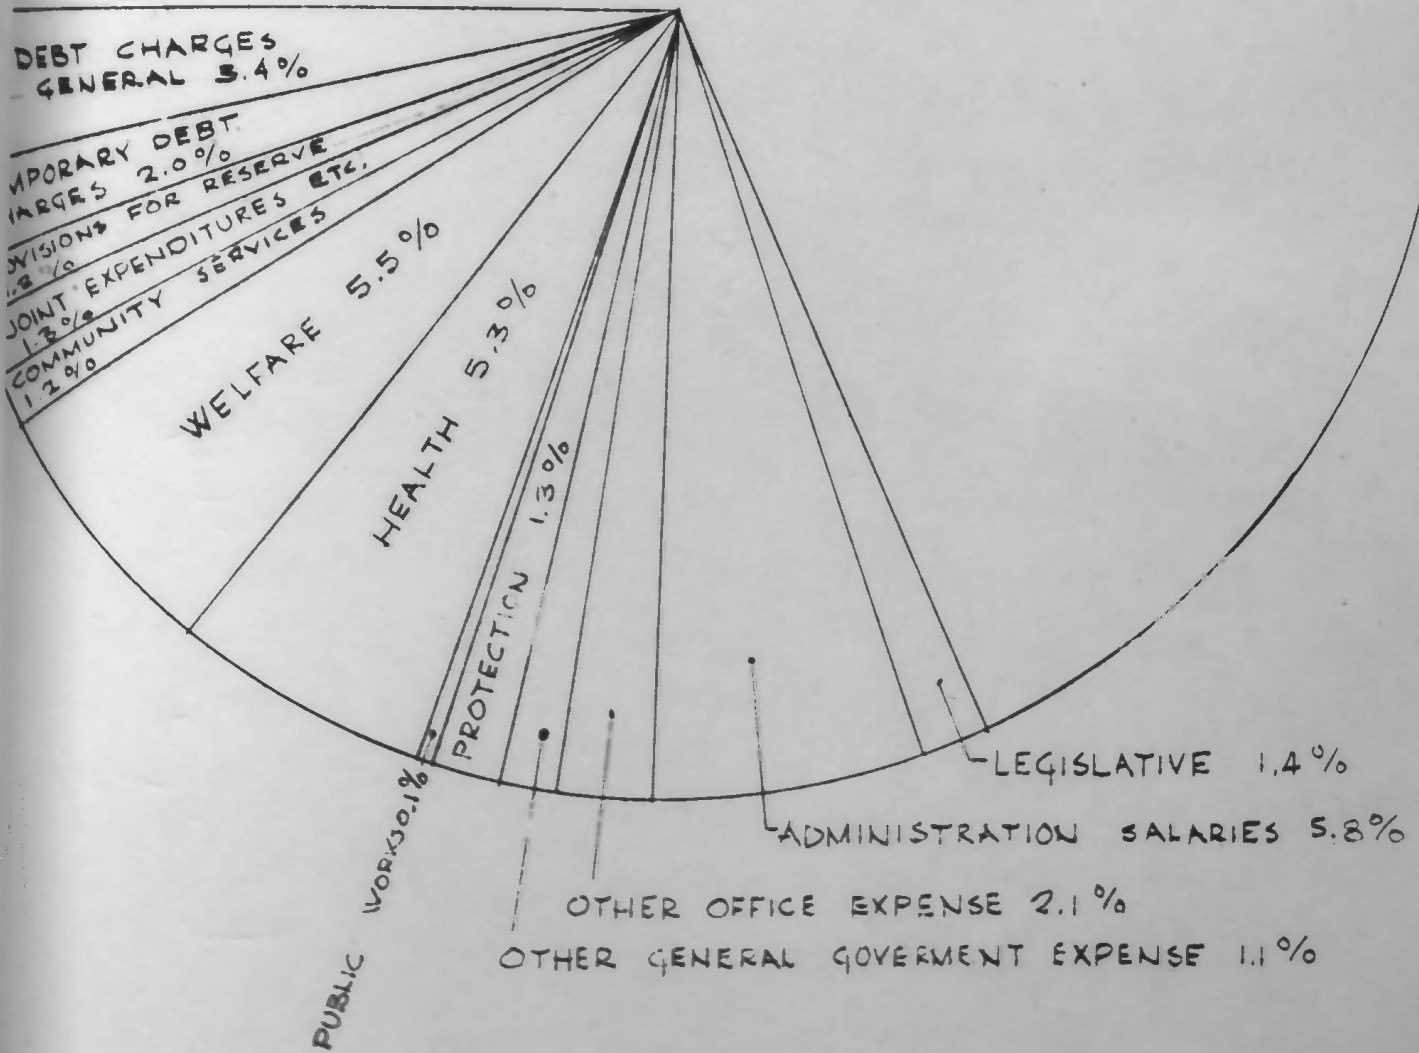 DEBT CHARGES
GENERAL 3.4%
MPORARY DEBT
HARGES 2.0%
OVISIONS FOR RESERVE
.8%
JOINT EXPENDITURES ETC.
1.3%
COMMUNITY SERVICES
1.2%
WELFARE 5.5%
HEALTH 5.3%
PUBLIC WORKS 0.1%
PROTECTION 1.3%
LEGISLATIVE 1.4%
ADMINISTRATION SALARIES 5.8%
OTHER OFFICE EXPENSE 2.1%
OTHER GENERAL GOVERMENT EXPENSE 1.1%